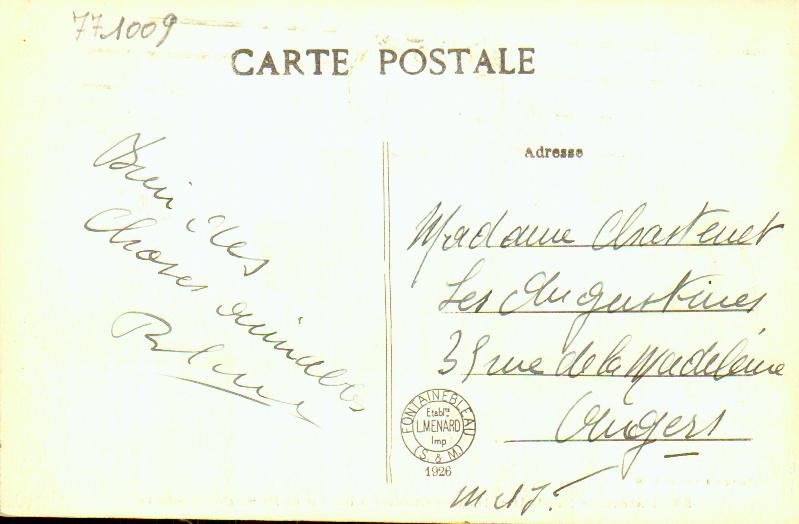 771009
CARTE POSTALE
des
Choses aimables
Adresse
Madame Chastenet
Les Augustines
39 rue de la Madeleine
Angers
M & L
FONTAINEBLEAU
Etablts
L. MENARD
Imp
(S. & M.)
1926